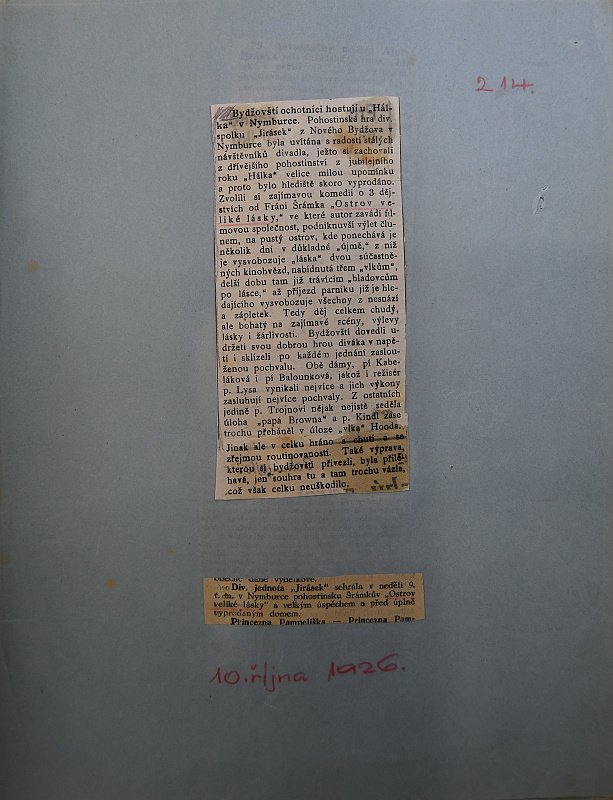 214.
Bydžovští ochotníci hostují u „Hál-
ka“ v Nymburce. Pohostinská hra div.
spolku „Jirásek“ z Nového Bydžova v
Nymburce byla uvítána s radostí stálých
návštěvníků divadla, ježto si zachovali
z dřívějšího pohostinství z jubilejního
roku „Hálka“ velice milou upomínku
a proto bylo hlediště skoro vyprodáno.
Zvolili si zajímavou komedii o 3 děj-
stvích od Fráni Šrámka „Ostrov ve-
liké lásky,“ ve které autor zavádí fil-
movou společnost, podniknuvší výlet člu-
nem, na pustý ostrov, kde ponechává je
několik dní v důkladné „újmě,“ z níž
je vysvobozuje „láska“ dvou súčastně-
ných kinohvězd, nabídnutá třem „vlkům“,
delší dobu tam již trávícím „hladovcům
po lásce,“ až příjezd parníku již je hle-
dajícího vysvobozuje všechny z nesnází
a zápletek. Tedy děj celkem chudý,
ale bohatý na zajímavé scény, výlevy
lásky i žárlivosti. Bydžovští dovedli u-
držeti svou dobrou hrou diváka v napě-
tí i sklízeli po každém jednání zaslou-
ženou pochvalu. Obě dámy, pí Kabe-
láková i pí Balounková, jakož i režisér
p. Lysa vynikali nejvíce a jich výkony
zasluhují nejvíce pochvaly. Z ostatních
jedině p. Trojnovi nějak nejistě seděla
úloha „papá Browna“ a p. Kindl zase
trochu přeháněl v úloze „vlka“ Hooda.
Jinak ale v celku hráno s chutí a se
zřejmou routinovaností. Také výprava,
kterou si bydžovští přivezli, byla přilé-
havá, jen souhra tu a tam trochu vázla,
což však celku neuškodilo.
obecné daně výdělkové.
Div. jednota „Jirásek“ sehrála v neděli 9.
t. m. v Nymburce pohostinsku Šrámkův „Ostrov
veliké lásky“ s velkým úspěchem a před úplně
vyprodaným domem.
Princezna Pampeliška — Princezna Pam-
10. října 1926.